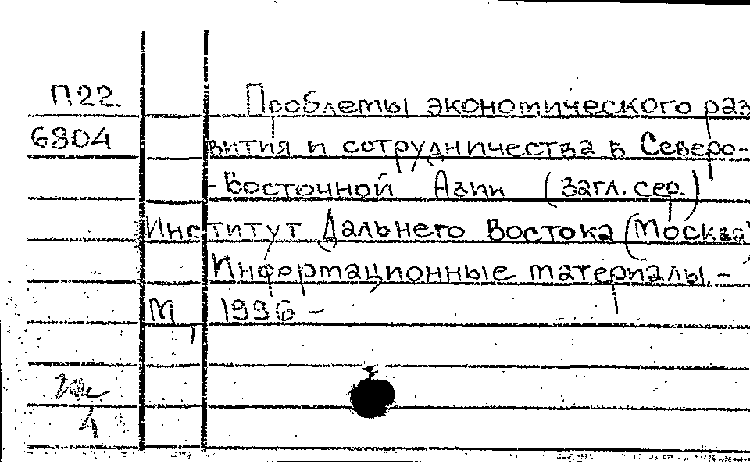 П22
Проблемы экономического раз
6804
вития и сотрудничества в Северо-
-Восточной Азии (загл. сер.)
Институт Дальнего Востока (Москва)
Информационные материалы. -
М, 1996 -